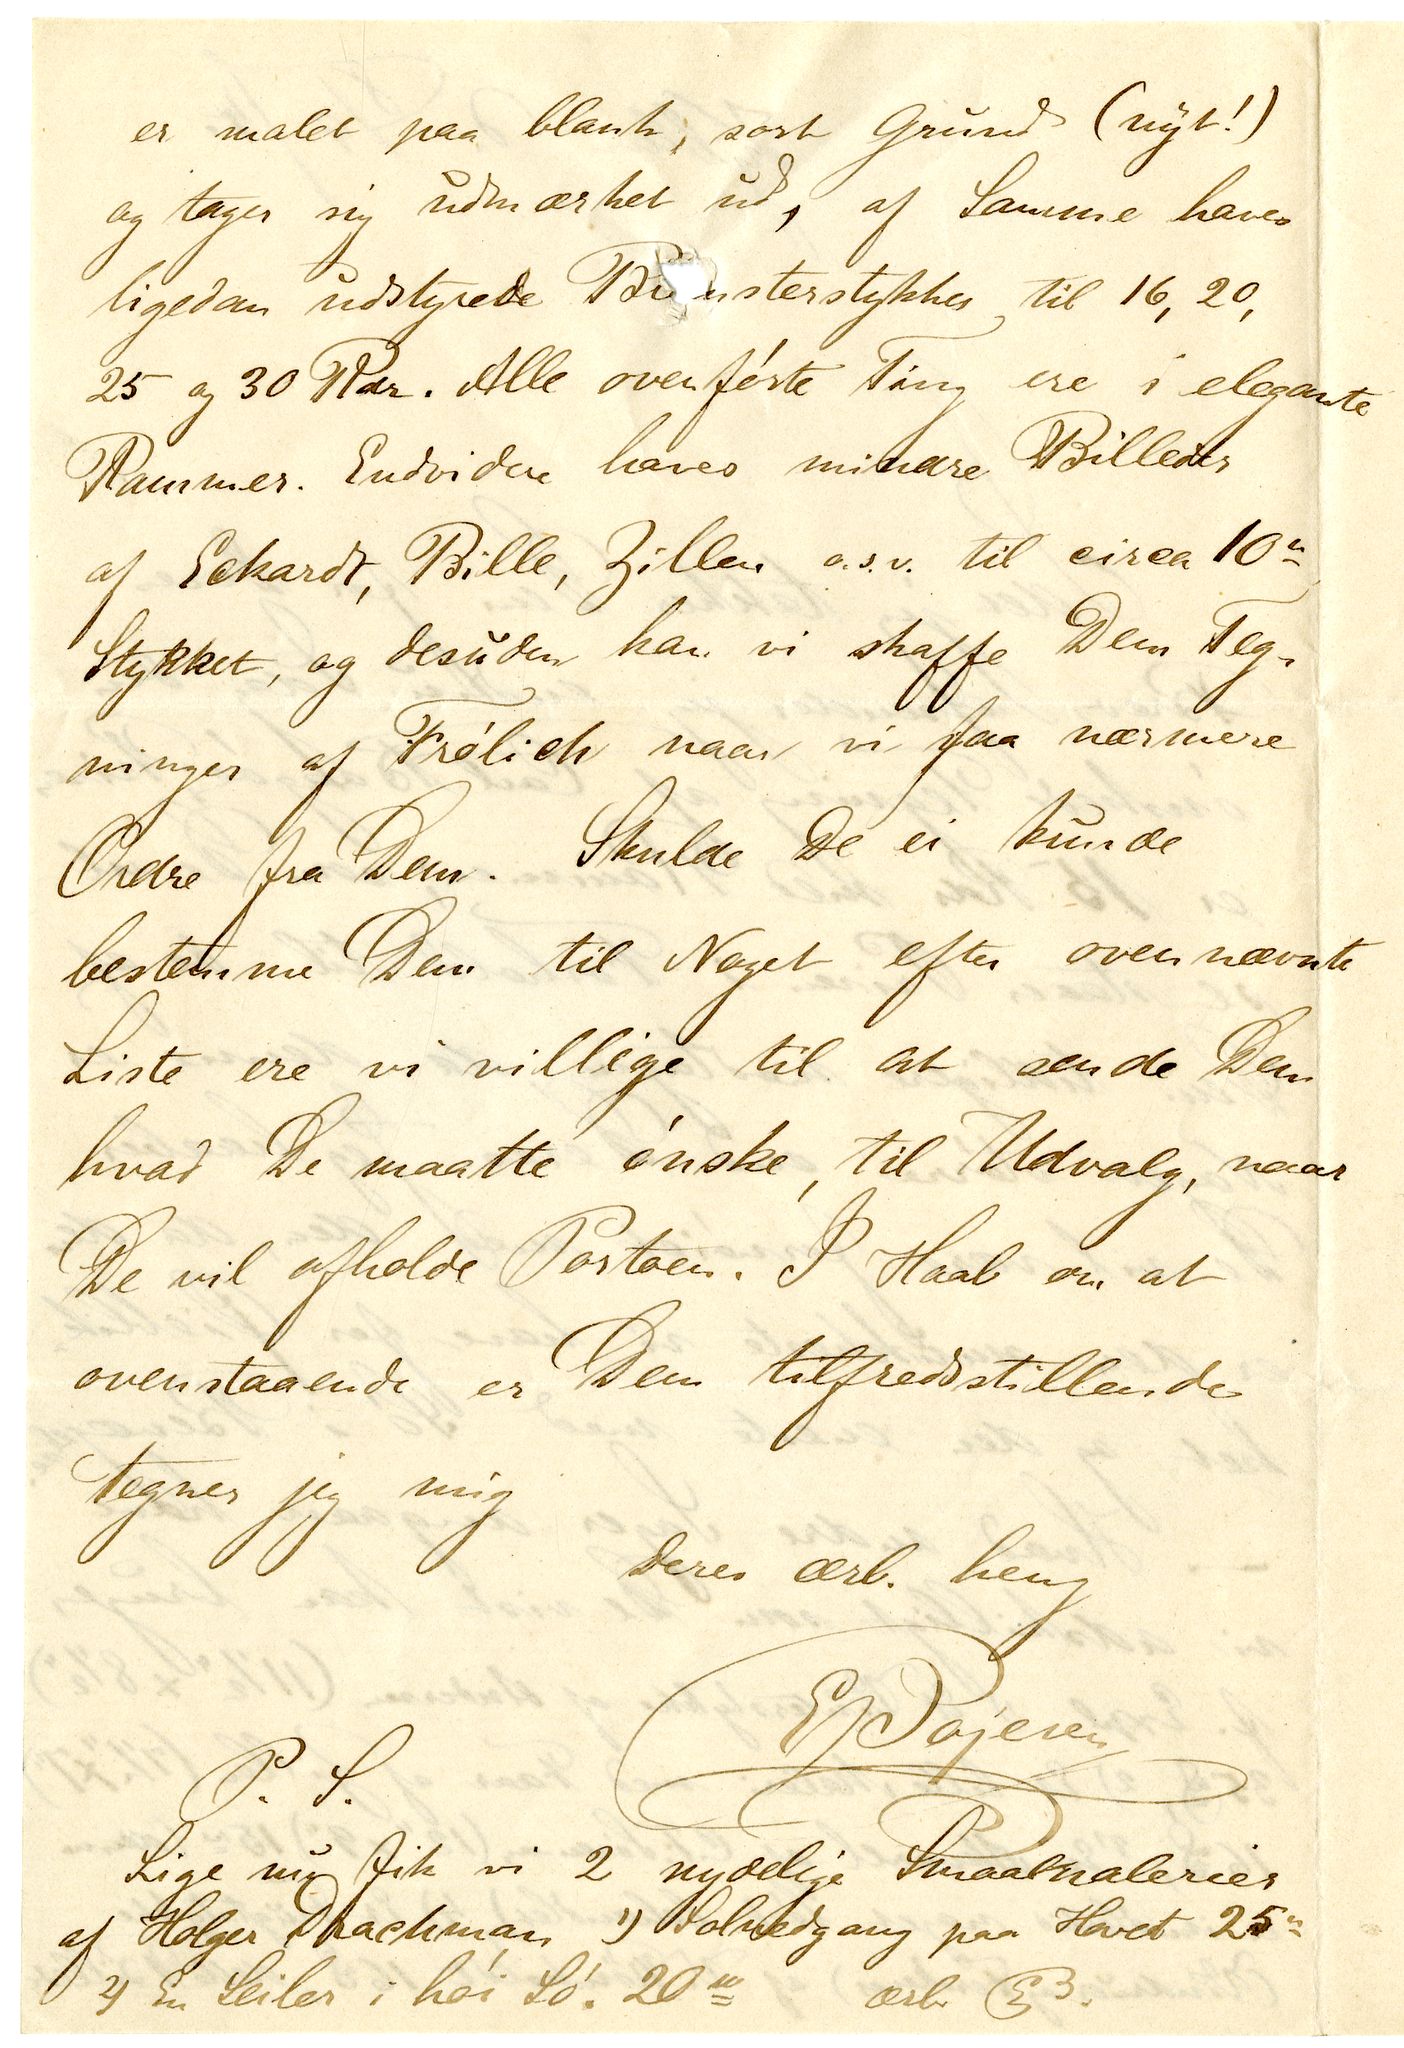 er malet paa blank, sort Grund (nyt!)
og tager sig udmærket ud, af Samme haves
ligedan udstyrede Blomsterstykker til 16, 20,
25 og 30 Rdr. Alle ovenførte Ting ere i elegante
Rammer. Endvidere haves mindre Billeder
af Eckardt, Bille, Zillen o.s.v. til circa 10
Stykket, og desuden kan vi skaffe Dem Teg-
ninger af Frølich naar vi faa nærmere
Ordre fra Dem. Skulde De ei kunde
bestemme Dem til Noget efter ovennævnte
Liste ere vi villige til at sende Dem
hvad De maatte ønske, til Udvalg, naar
De vil afholde Portoen. I Haab om at
ovenstaaende er Dem tilfredsstillende
tegner jeg mig
Deres ærb. heng
P. S.
Lige nu fik vi 2 nydelige Smaamalerier
af Holger Drachman 1) Solnedgang paa Havet 25
2) En Seiler i høi Sø. 20 ærb